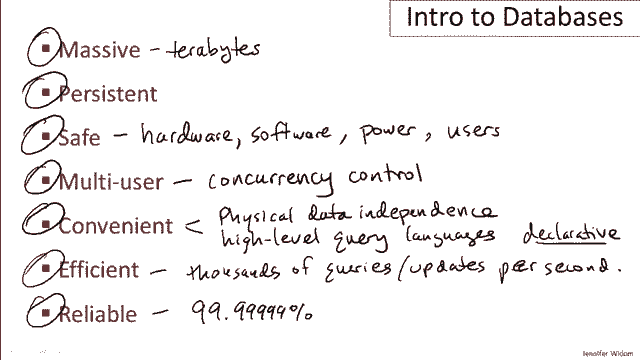 Intro to Databases
Massive – terabytes
Persistent
Safe – hardware, software, power, users
Multi-user – concurrency control
Convenient < Physical data independence
high-level query languages declarative
Efficient – thousands of queries/updates per second.
Reliable – 99.99999%
Jennifer Widom